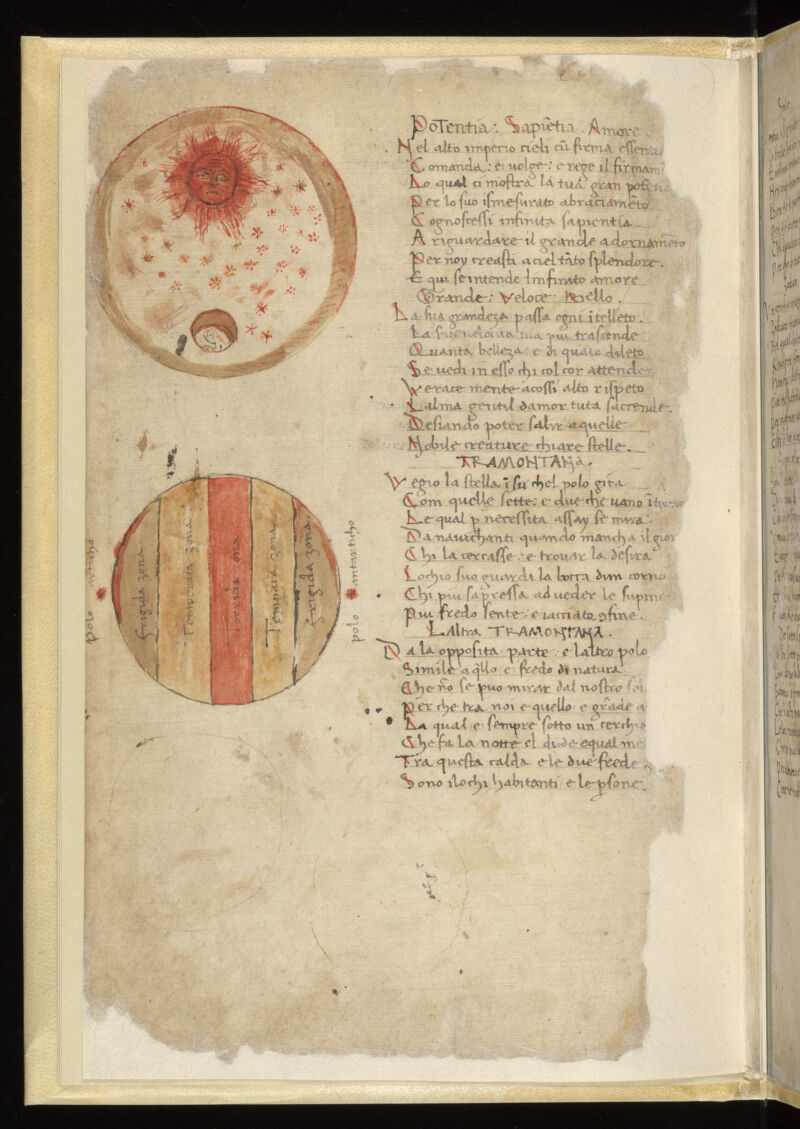 Potentia: Sapiẽtia. Amore.
Nel alto imperio cieli cũ firma essenza
Comanda: e uolge: e rege il firmam
Lo qual ci mostra la tua gran pote
Per lo suo ismesurato abraciamẽto
Cognoscessi infinita sapientia
A riguardare il grande adornamẽto
Per noy creasti a ciel tãto splendore.
E qui se intende linfinito amore
Grande: Veloce: Bello.
La sua grandeza passa ogni ĩtelleto.
La sua uelocita ma piu trasiende
Quanta belleza: e di quãto dileto
Se uedi in esso chi col cor attende
Verace mente acossi alto rispeto
Lalma gentil damor tuta sacrende.
Desiando poter salir a quelle
Nobile creature chiare stelle.
TRAMONTANA.
Vegio la stella ĩ su chel polo gira
Com quelle sette: e due che uano ĩ
Le qual p necessita assay se mira.
Da nauichanti quando mancha il gior
Chi la cercasse: e trouar la desira
Lochio suo guardi la bocca dun corno
Chi piu sapressa ad ueder le supine
Piu fredo sente: e iacciato ofine.
LAltra TRAMONTANA.
Da la opposita parte: e laltro polo
Simile a qllo e fredo di natura
Che nõ se puo mirar dal nostro sol
Per che tra noi e quello e grãde a
La qual e sempre sotto un cerchio
Che fa la notte el di de equal me
Tra questa calda e le due frede
Sono i lochi habitanti e le psone.
polo articho
frigida zona
Temperata zona
Torrida zona
Temparata zona
frigida zona
polo antarticho